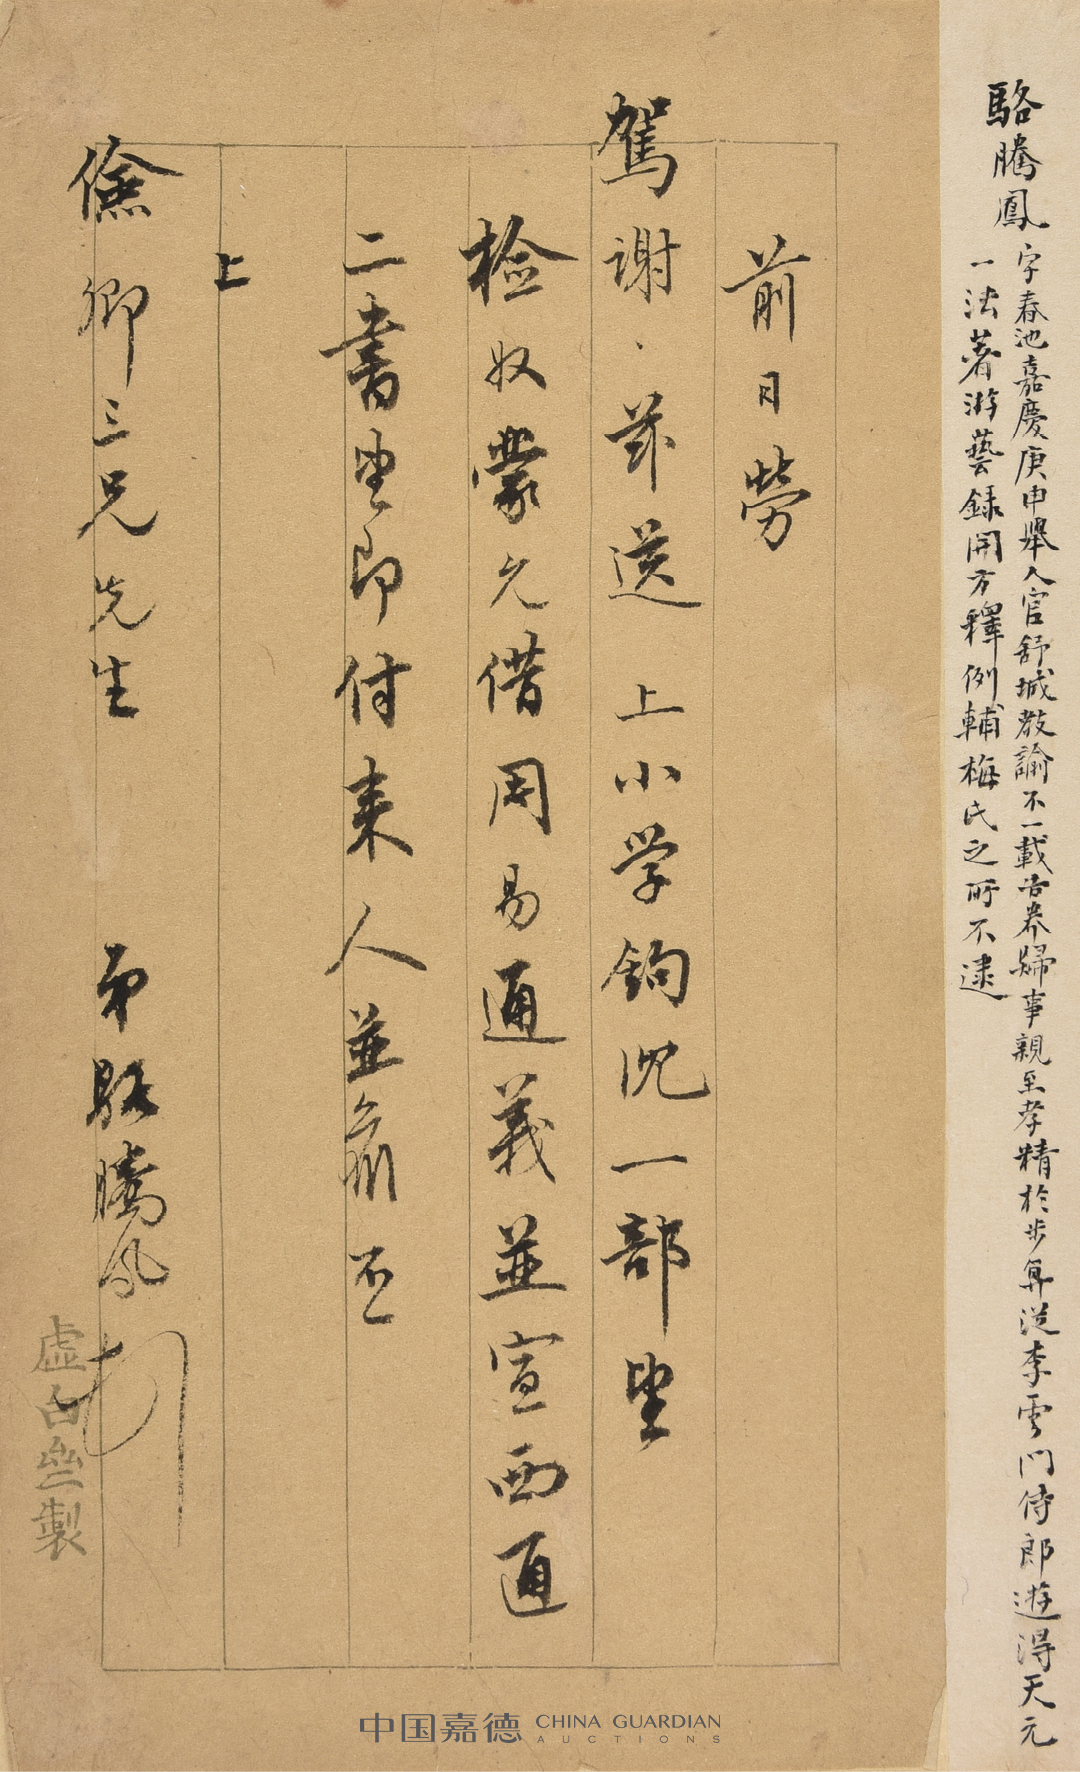 駱騰鳳字春池嘉慶庚申舉人官舒城教諭不一載告養歸事親至孝精於步算從李雲門侍郎遊得天元
一法著游藝錄開方釋例輔梅氏之所不逮
前日勞
駕謝、茲送上小学鉤沈一部望
檢收蒙允借周易通義並宣西通
二書望即付来人並前
上
儉卿三兄先生 弟駱騰鳳
虛白齋製
中国嘉德 CHINA GUARDIAN
AUCTIONS